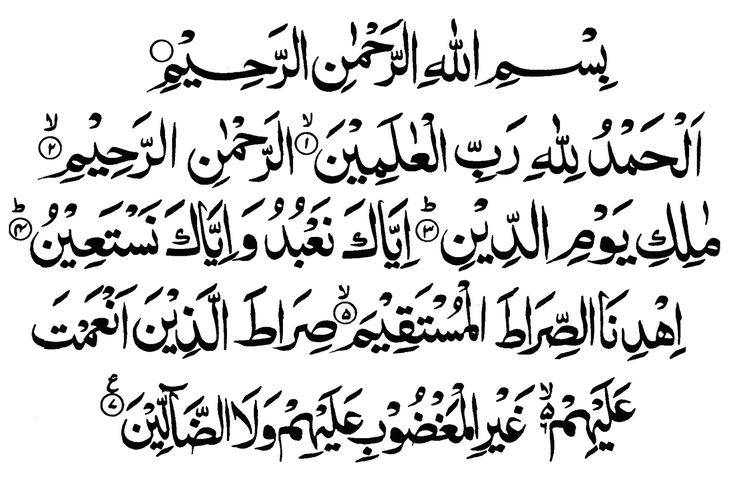 بِسْمِ اللهِ الرَّحْمٰنِ الرَّحِيْمِ ○
اَلْحَمْدُ لِلّٰهِ رَبِّ الْعٰلَمِيْنَ ۙ﴿۱﴾ الرَّحْمٰنِ الرَّحِيْمِ ۙ﴿۲﴾
مٰلِكِ يَوْمِ الدِّيْنِ ؕ﴿۳﴾ اِيَّاكَ نَعْبُدُ وَاِيَّاكَ نَسْتَعِيْنُ ؕ﴿۴﴾
اِهْدِنَا الصِّرَاطَ الْمُسْتَقِيْمَ ۙ﴿۵﴾ صِرَاطَ الَّذِيْنَ اَنْعَمْتَ
عَلَيْهِمْ ۙ۵ غَيْرِ الْمَغْضُوْبِ عَلَيْهِمْ وَلَا الضَّآلِّيْنَ ﴿۷﴾ ع